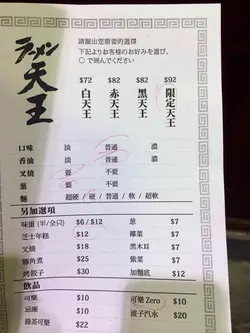 ラーメン
天王
請圈出您需要的選擇
下記よりお客様のお好みを選び、
○で囲んでください
$72 $82 $82 $92
白天王 赤天王 黑天王 限定天王
口味 淡 普通 濃
香油 淡 普通 濃
叉燒 要 不要
蔥 要 不要
麵 超硬 / 硬 / 普通 / 軟 / 超軟
另加選項
味蛋 (半/全只) $6 / $12 蔥 $7
芝士年糕 $12 椰菜 $7
叉燒 $18 黑木耳 $7
豚角煮 $25 紫菜 $7
烤餃子 $30 加麵底 $12
飲品
可樂 $10 可樂 Zero $10
忌廉 $10 波子汽水 $20
綠茶可樂 $22